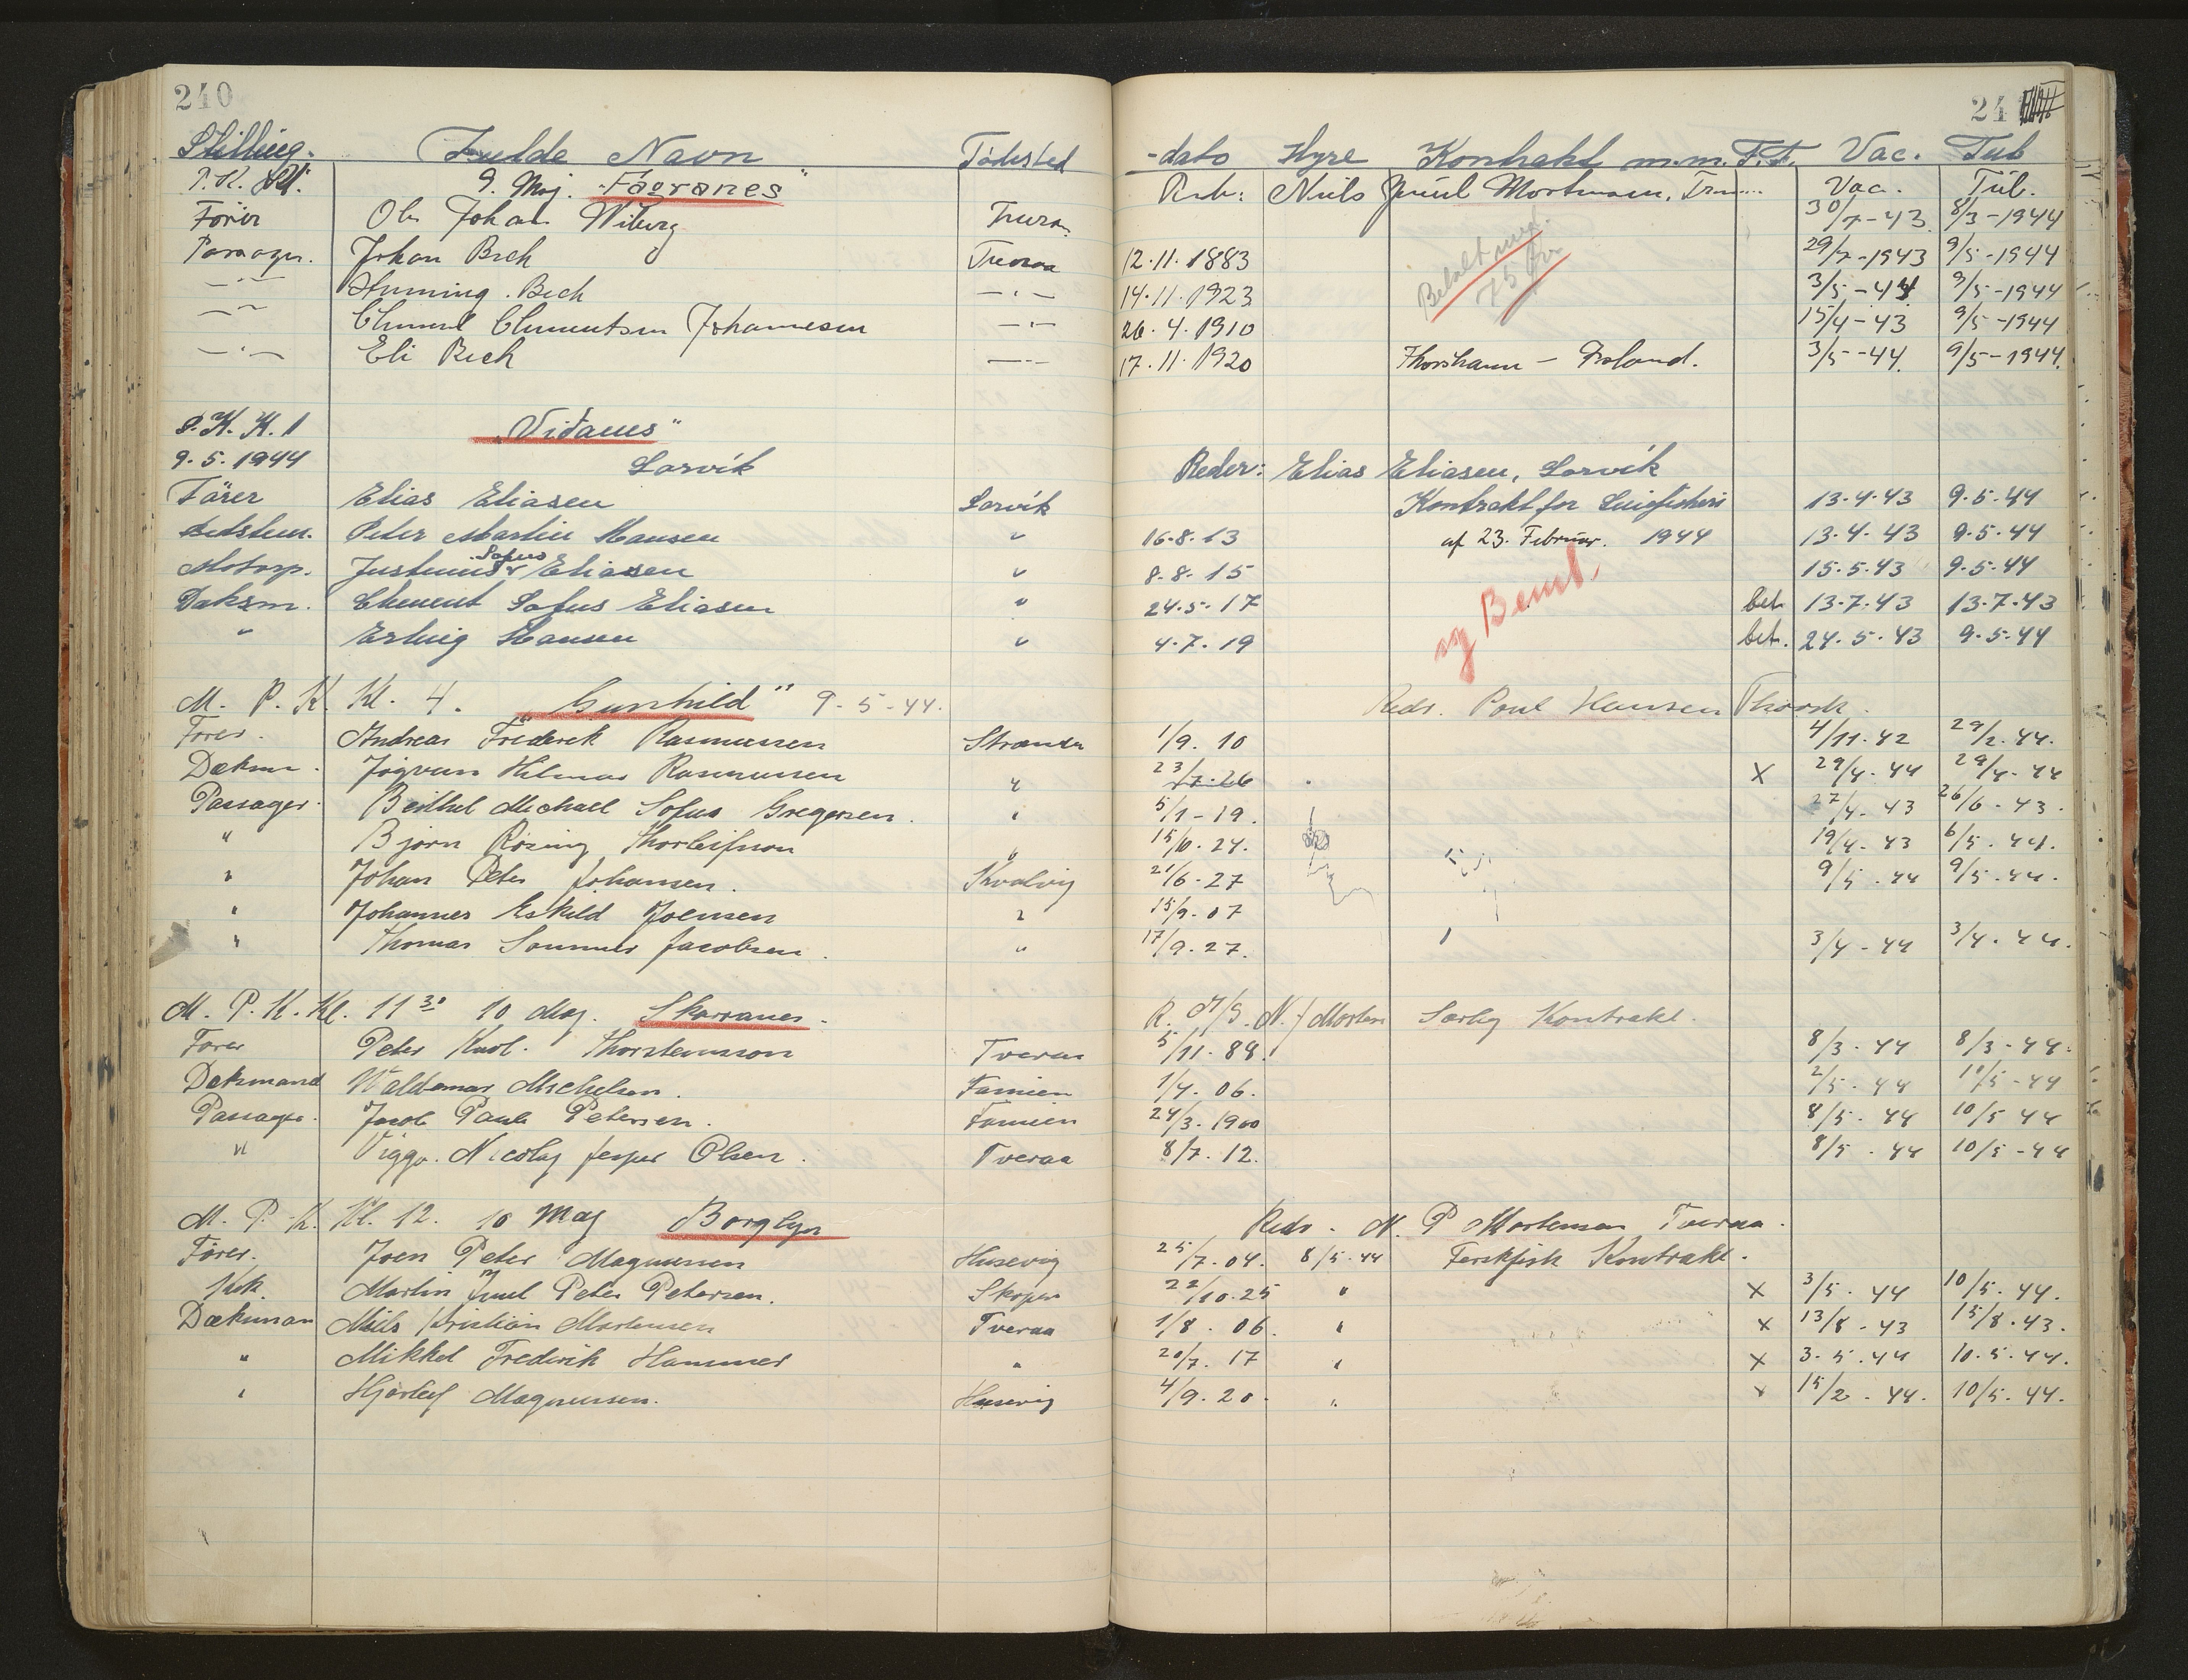 240
24
Stilling. Fulde Navn Fødested -dato Hyre Kontrakt m.m. F.F. Vac. Tub
P.K. 9. Maj. "Fagranes" Red: Niels Juul Mortensen, Vac. Tub.
Fører Ole Johan Wiberg 30/7-43 8/3-1944
Passager. Johan Bech Tveraa 12.11.1883 29/7-1943 9/5-1944
—"— Henning Bech —"— 14.11.1923 3/5-44 9/5-1944
—"— Clement Clementsen Johannesen —"— 26.4.1910 15/4-43 9/5-1944
—"— Eli Bech —"— 17.11.1920 Thorshavn — Island. 3/5-44. 9/5-1944.
Betalt
P.K.K.1 "Vidanes"
9.5.1944 Sørvík Reder: Elias Eliasen, Sørvík
Fører Elias Eliasen Sørvík Kontrakt for Liniefiskeri 13.4.43 9.5.44
Bedstem. Peter Martin Hansen " 16.8.13 af 23. Februar. 1944 13.4.43 9.5.44
Motorp. Justinus Sofus Eliasen " 8.8.15 15.5.43 9.5.44
Daksm. Clement Sofus Eliasen " 24.5.17 bet. 13.7.43 13.7.43
" Erling Hansen " 4.7.19 bet. 24.5.43 9.5.44
M. P. K. Kl. 4. "Gunhild" 9-5-44. Redr. Poul Hansen
Fører. Andreas Frederik Rasmussen 1/9. 10 4/11.42 29/2.44.
Dæksm. Jógvan Hilmar Rasmussen " 23/7.26 X 29/4.44 29/4.44
Passager. Berthel Michael Sofus Gregersen. " 5/1-19. 27/4-43 26/6-43.
" Bjørn Rosing Thorleifsson " 15/6.24. 19/4.43 6/5.44.
" Johan Peter Johansen. Kvalvig 21/6-27 9/5.44 9/5.44.
" Johannes Eskild Joensen " 15/9.07
" Thomas Sommer Jacobsen. " 17/9.27. 3/4-44 3/4.44.
M. P. K. Kl. 11 30 10 Maj. Skorranes. R. N. Morten Særlig Kontrakt.
Fører Peter Karl. Thorsteinsson Tveraa 5/11.89. 8/3.44 8/3-44.
Dæksmand Waldemar Michelsen. Famien 1/4.06. 2/5.44 10/5-44
Passager. Jacob Paule Petersen. Famien 24/3.1900 8/5.44 10/5 44
" Viggo. Nicolaj Jesper Olsen. Tveraa 8/7.12. 8/5.44 10/5-44
M. P. K. Kl. 12. 10 Maj Borglyn Redr. N. P Mortensen Tveraa.
Fører. Joen Peter Magnussen Husevig 25/7.04. 8/5.44 Ferskfisk Kontrakt.
Kok. Martin Juul Peter Petersen. 22/10.25 " X 3/5.44 10/5.44.
Dæksman Niels Kristian Mortensen Tveraa 1/8.06. " X 13/8-43 15/8.43.
" Mikkel Frederik Hammer " 20/7.17 " X 3.5.44 10.5.44.
" Hjørleif Magnussen. Husevig 4/9.20. " X 15/2-44. 10/5.44.